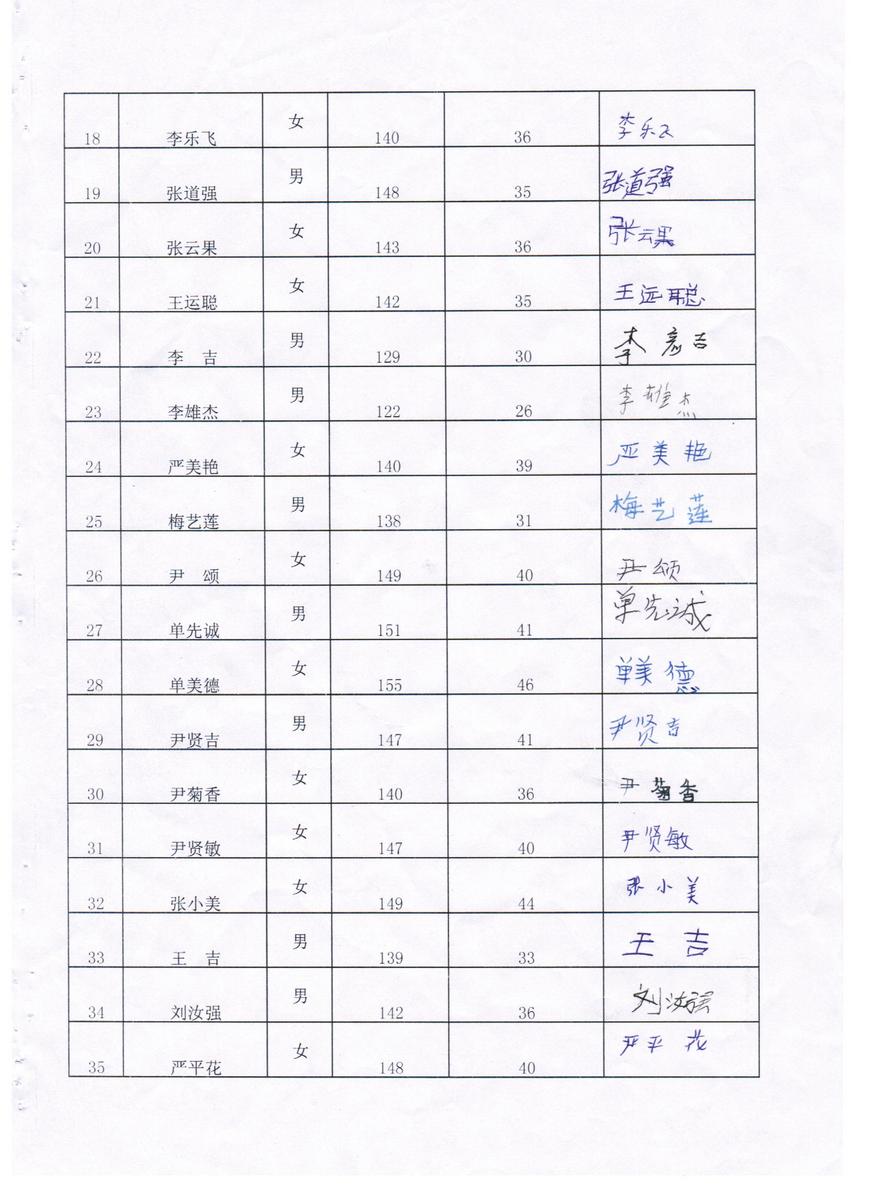 18 李乐飞 女 140 36 李乐飞
19 张道强 男 148 35 张道强
20 张云果 女 143 36 张云果
21 王运聪 女 142 35 王运聪
22 李 吉 男 129 30 李彦吉
23 李雄杰 男 122 26 李雄杰
24 严美艳 女 140 39 严美艳
25 梅艺莲 男 138 31 梅艺莲
26 尹 颂 女 149 40 尹颂
27 单先诚 男 151 41 单先诚
28 单美德 女 155 46 单美德
29 尹贤吉 男 147 41 尹贤吉
30 尹菊香 女 140 36 尹菊香
31 尹贤敏 女 147 40 尹贤敏
32 张小美 女 149 44 张小美
33 王 吉 男 139 33 王吉
34 刘汝强 男 142 36 刘汝强
35 严平花 女 148 40 严平花